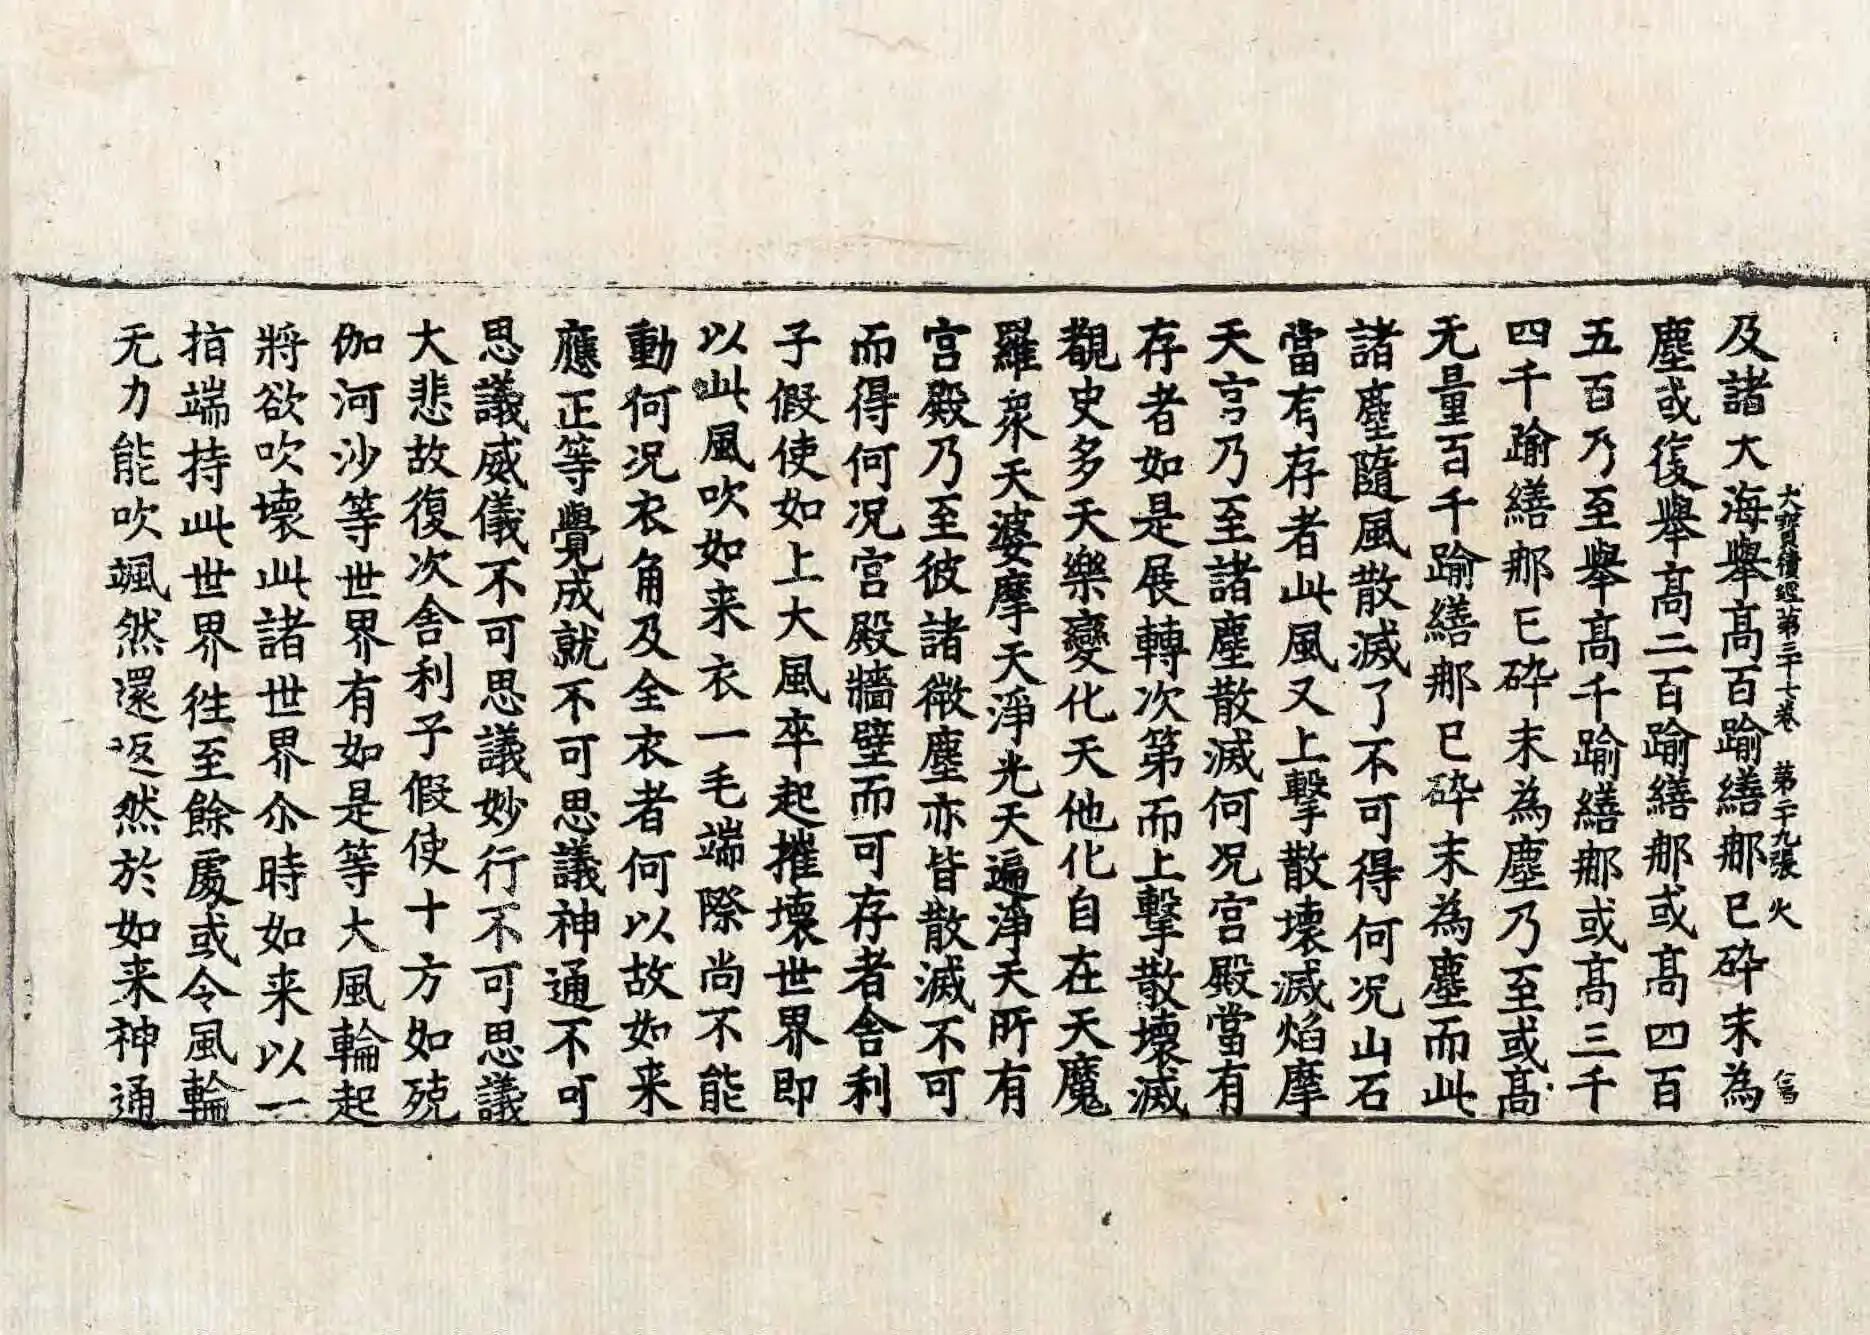 大寶積經第三十七卷　第二十九張　火
及諸大海舉高百踰繕那已碎末為
塵或復舉高二百踰繕那或高四百
五百乃至舉高千踰繕那或高三千
四千踰繕那已碎末為塵乃至或高
无量百千踰繕那已碎末為塵而此
諸塵隨風散滅了不可得何况山石
當有存者此風又上擊散壞滅焰摩
天宫乃至諸塵散滅何况宫殿當有
存者如是展轉次第而上擊散壞滅
覩史多天樂變化天他化自在天魔
羅衆天婆摩天淨光天遍淨天所有
宫殿乃至彼諸微塵亦皆散滅不可
而得何况宫殿牆壁而可存者舍利
子假使如上大風卒起摧壞世界即
以此風吹如来衣一毛端際尚不能
動何况衣角及全衣者何以故如来
應正等覺成就不可思議神通不可
思議威儀不可思議妙行不可思議
大悲故復次舍利子假使十方如殑
伽河沙等世界有如是等大風輪起
將欲吹壞此諸世界尒時如来以一
指端持此世界徃至餘處或令風輪
无力能吹颯然還返然於如来神通